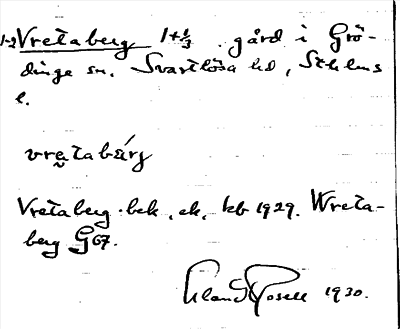 1-2 Vretaberg 1+1/3 gård i Grö-
dinge sn. Svartlösa hd, Sthlms
l.
vretabärj
Vretaberg. bek, ek, kb 1929. Wreta-
berg G 67.
Erland Rosell 1930.